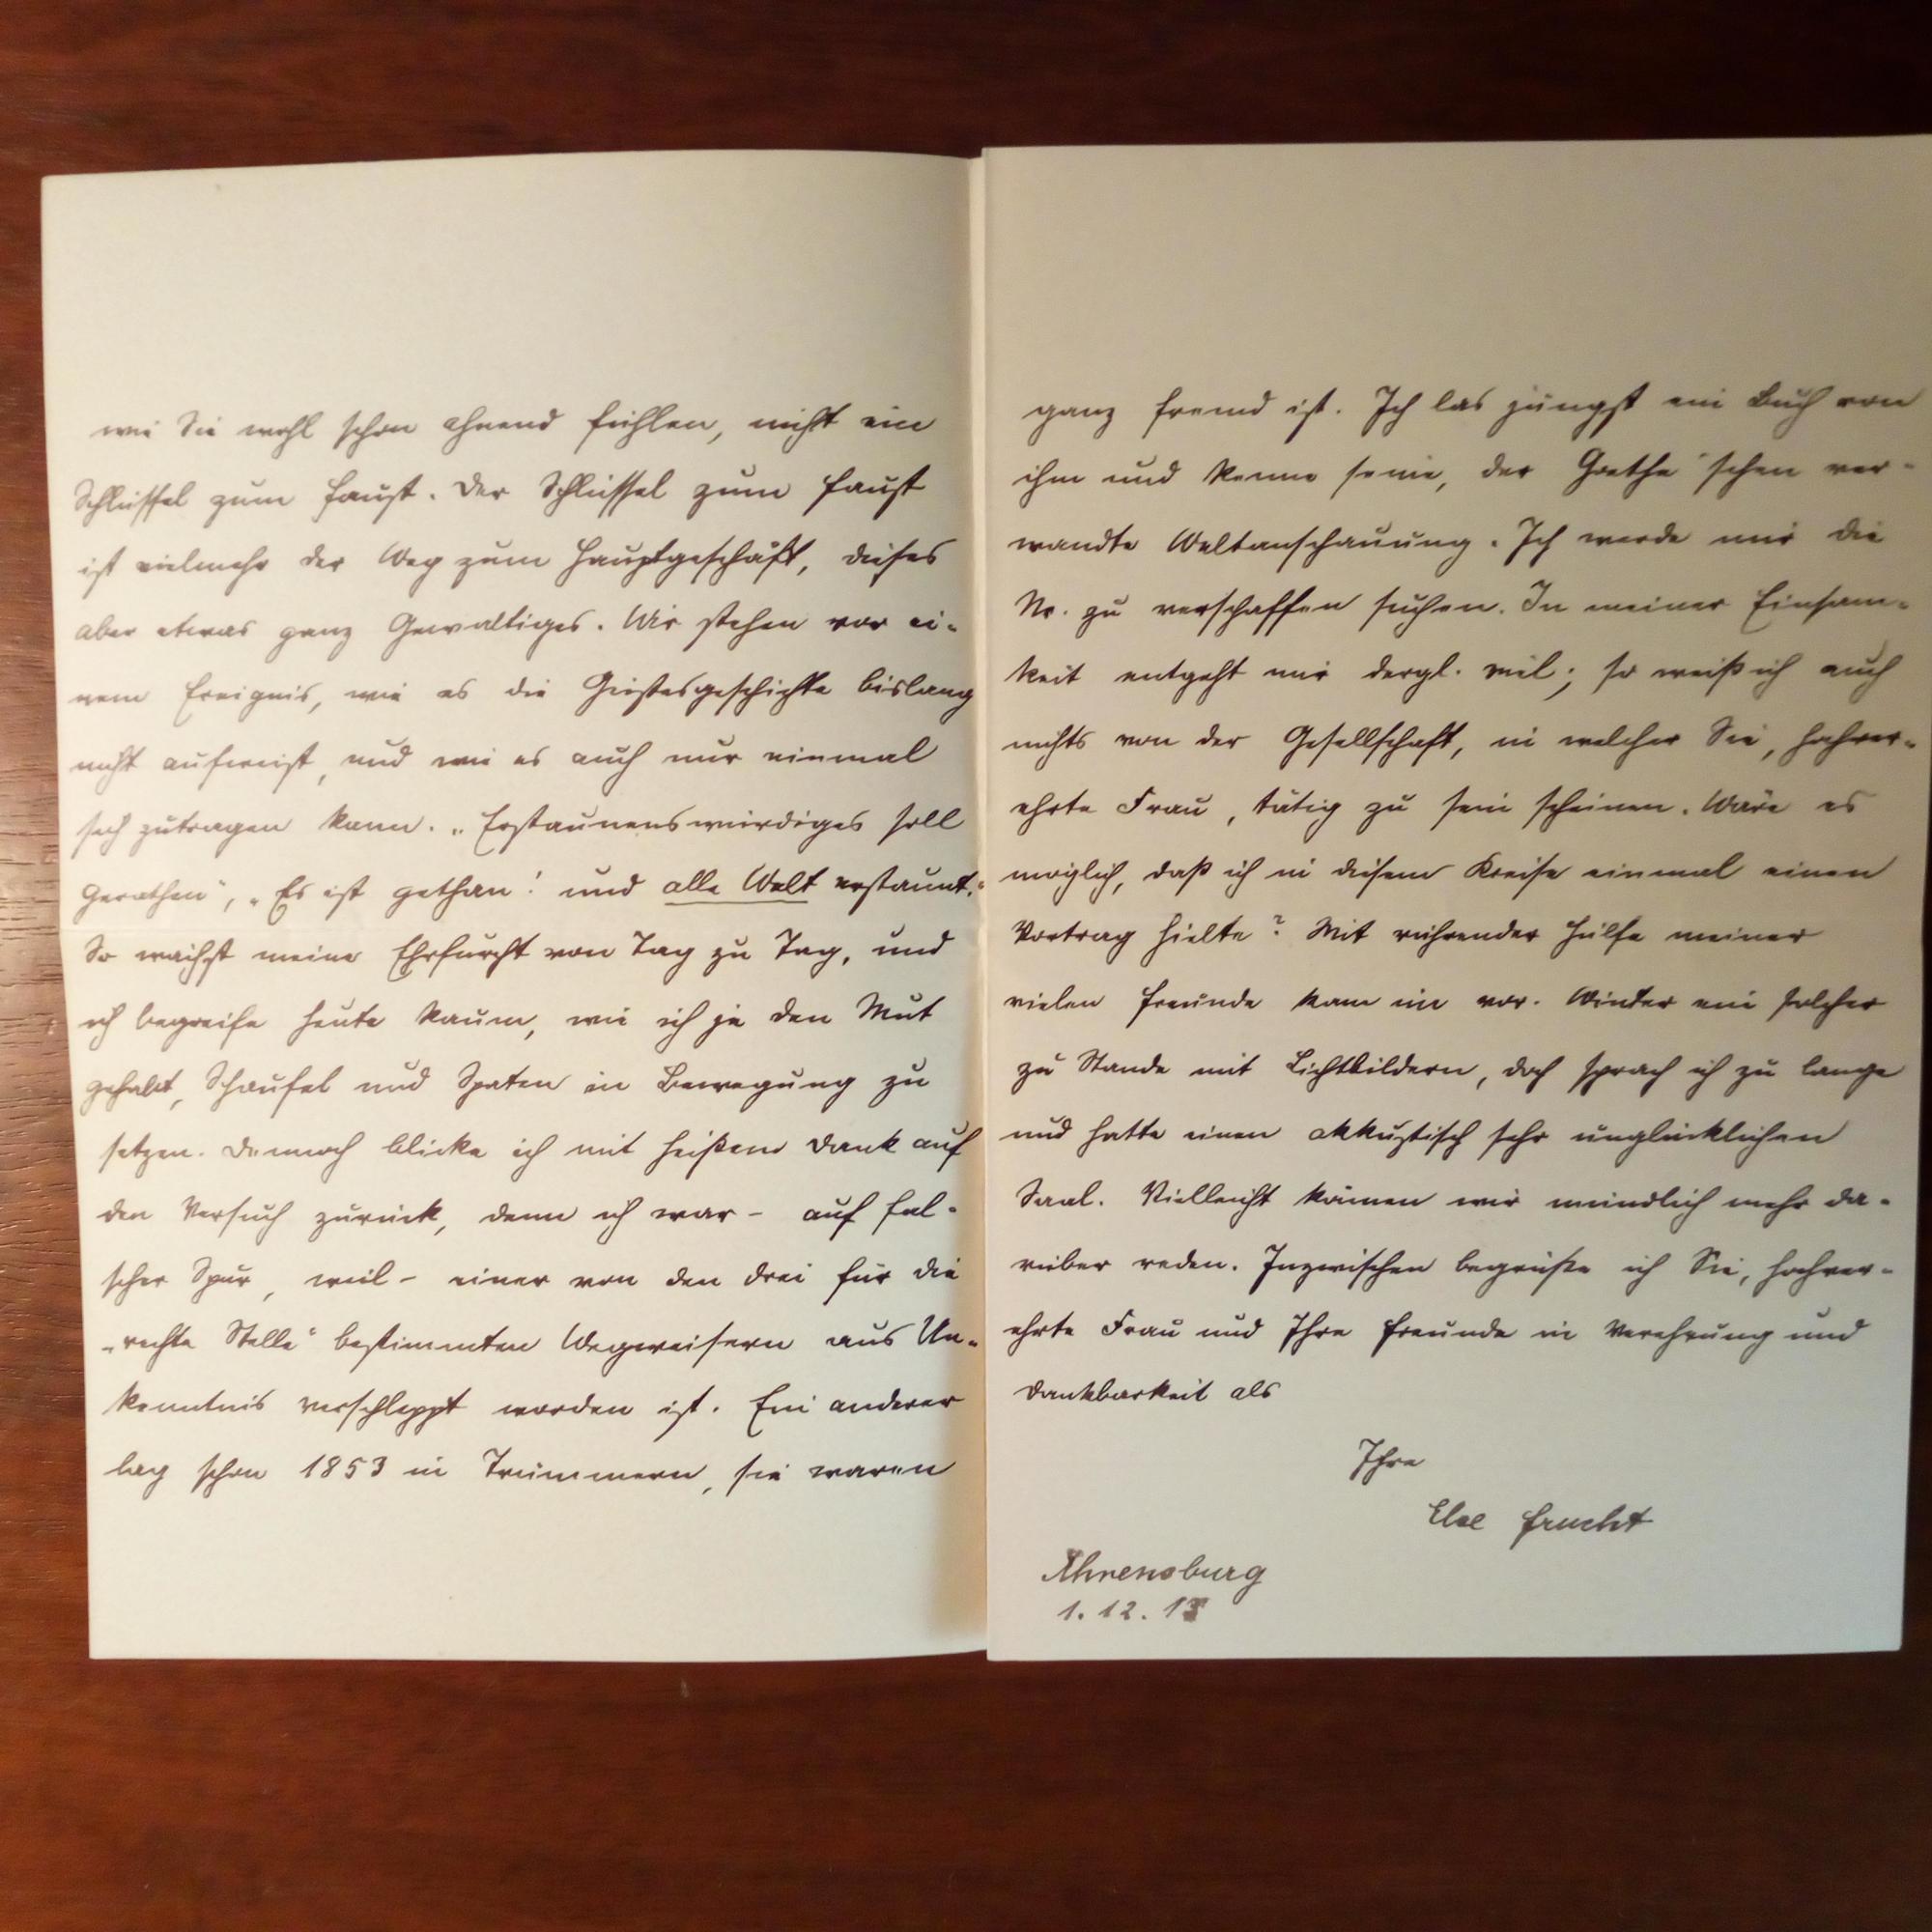 wie Sie wohl schon ahnend fühlen, nicht ein
Schlüssel zum Faust. Der Schlüssel zum Faust
ist vielmehr der Weg zum Hauptgeschäft, dieses
aber etwas ganz Gewaltiges. Wir stehen vor ei-
nem Ereignis, wie es die Geistesgeschichte bislang
nicht aufweist, und wie es auch nur einmal
sich zutragen kann. „Erstaunenswürdiges soll
gerathen", „Es ist gethan! und alle Welt erstaunt."
So wächst meine Ehrfurcht von Tag zu Tag, und
ich begreife heute kaum, wie ich je den Mut
gehabt, Schaufel und Spaten in Bewegung zu
setzen. Dennoch blicke ich mit heißem Dank auf
den Versuch zurück, denn ich war - auf fal-
scher Spur, weil - einer von den drei für die
„rechte Stelle" bestimmten Wegweisern aus Un-
kenntnis verschleppt worden ist. Ein anderer
lag schon 1853 in Trümmern, sie waren
ganz fremd ist. Ich las jüngst ein Buch von
ihm und kenne seine, der Goethe'schen ver-
wandte Weltanschauung. Ich werde mir die
Nr. zu verschaffen suchen. In meiner Einsam-
keit entgeht mir dergl. viel; so weiß ich auch
nichts von der Gesellschaft, in welcher Sie, hochver-
ehrte Frau, tätig zu sein scheinen. Wäre es
möglich, daß ich in diesem Kreise einmal einen
Vortrag hielte? Mit rührender Hülfe meiner
vielen Freunde kam im vor. Winter ein solcher
zu Stande mit Lichtbildern, doch sprach ich zu lange
und hatte einen akkustisch sehr unglücklichen
Saal. Vielleicht können wir mündlich mehr da-
rüber reden. Inzwischen begrüße ich Sie, hochver-
ehrte Frau und Ihre Freunde in Verehrung und
Dankbarkeit als
Ihre
Else Frucht
Ahrensburg
1. 12. 13